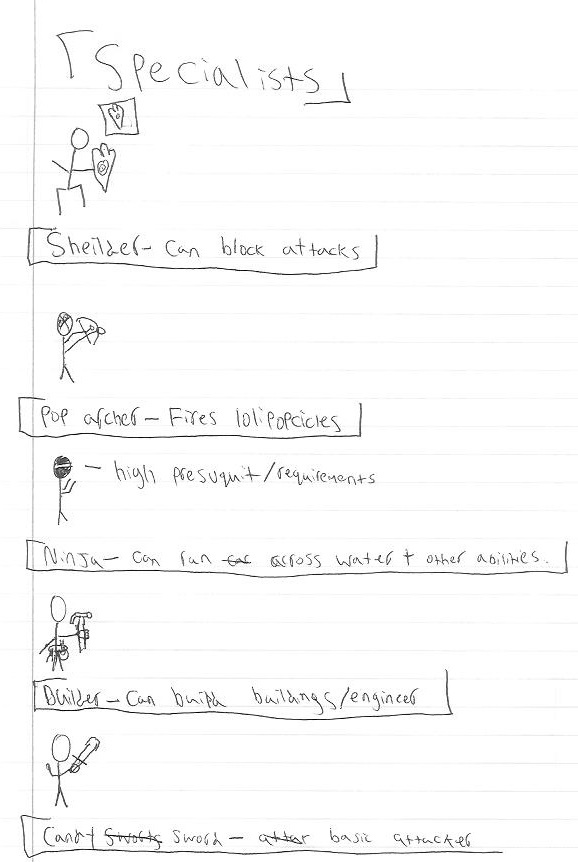 「Specialists」
Sheilder- Can block attacks
Pop archer - Fires lolipopcicles
- high presuquit/requirements
Ninja- Can run car across water + other abilities.
Builder- Can build buildings/engineer
Candy Swords sword - attar basic attacker